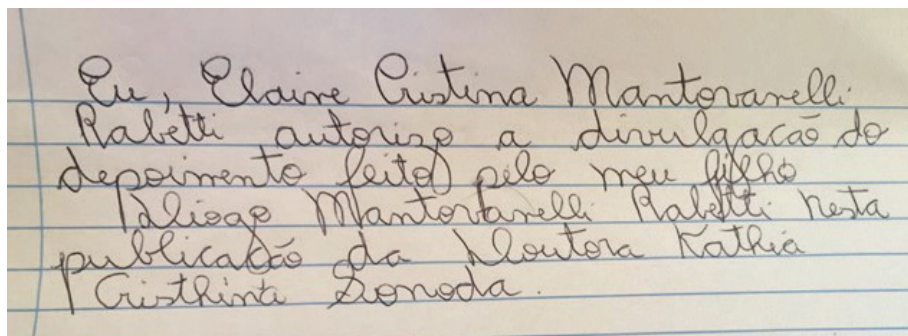 Eu, Elaine Cristina Mantovanelli
Rabetti autorizo a divulgacão do
depoimento feito pelo meu filho
Diogo Mantovanelli Rabetti nesta
publicação da Doutora Kathia
Cristhina Sonoda.